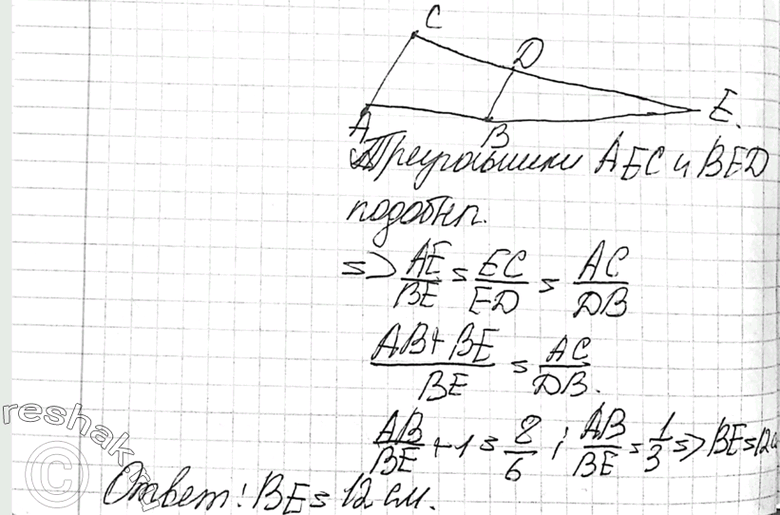 C
D
E.
A
B
Треугольники AEC и BED
подобны.
=> AE/BE = EC/ED = AC/DB
(AB+BE)/BE = AC/DB.
AB/BE + 1 = 8/6 ; AB/BE = 1/3 => BE = 12
Ответ: BE = 12 см.
reshak
©